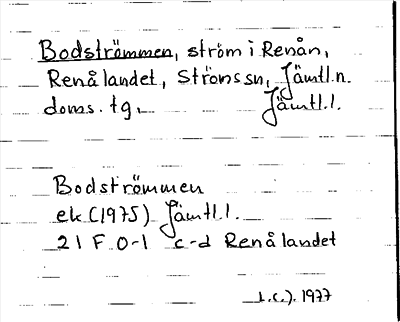 Bodströmmen, ström i Renån,
Renålandet, Ströms sn, Jämtl. n.
doms. tg. Jämtl. l.
Bodströmmen
ek (1975) Jämtl. l.
21 F 0-1 c-d Renålandet
1977